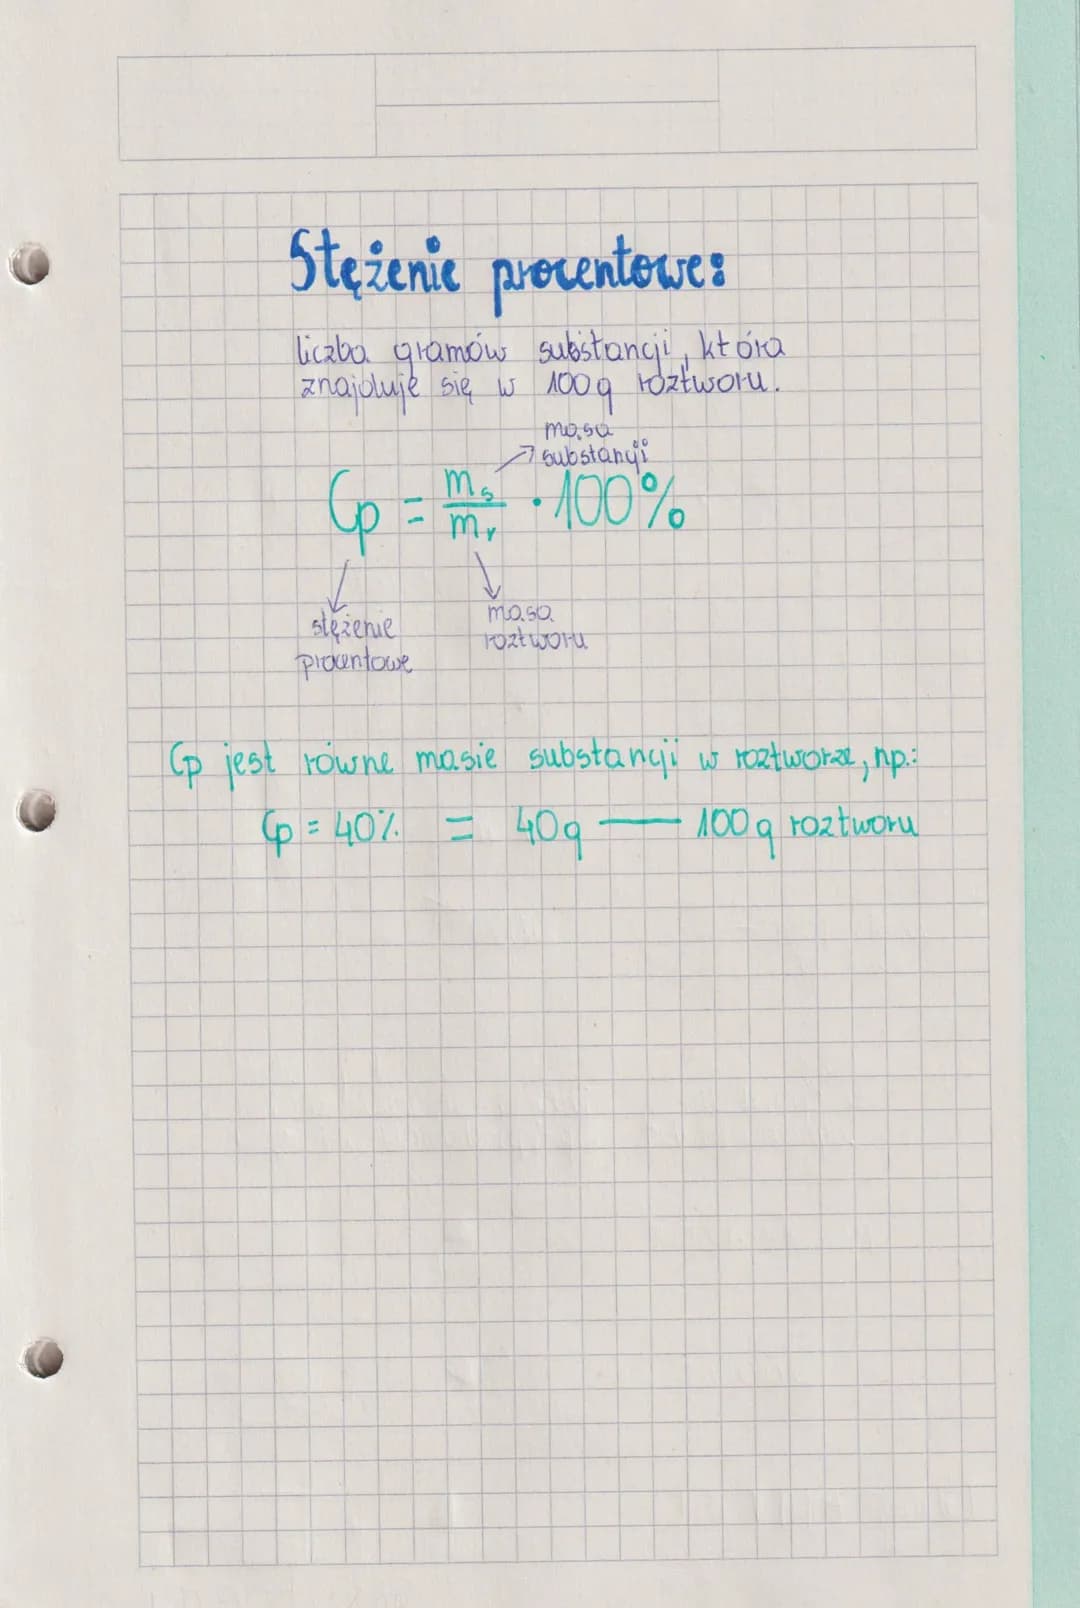 Stężenie procentowe:
liczba gramów substancji, która
znajduje się w 100g roztworu.
masa
substancji
Cp = ms/mr · 100%
stężenie
procentowe
masa
roztworu
Cp jest równe masie substancji w roztworze, np.:
Cp = 40% = 40g — 100g roztworu